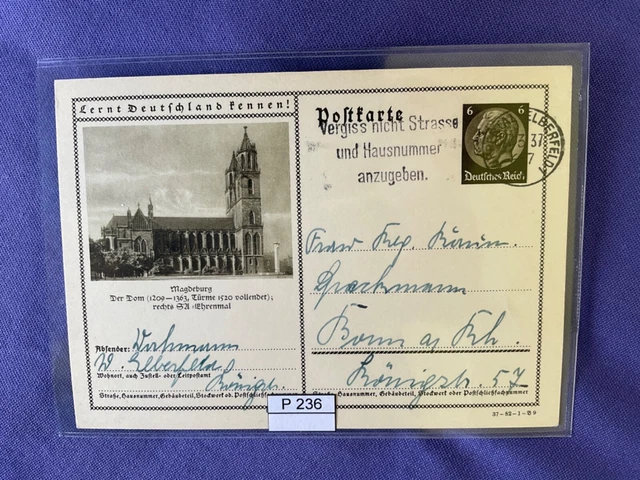 Lernt Deutschland kennen!
Magdeburg
Der Dom (1209–1363, Türme 1520 vollendet);
rechts SA-Ehrenmal
Absender:
W. Elberfeld
Wohnort, auch Zustell- oder Leitpostamt
Königstr.
Straße, Hausnummer, Gebäudeteil, Stockwerk od. Postschließfach
P 236
Postkarte
Vergiss nicht Strasse
und Hausnummer
anzugeben.
6 6
Deutsches Reich
ELBERFELD
37
7
Frau Reg.
Bonn a/Rh.
Königstr. 57
Straße, Hausnummer, Gebäudeteil, Stockwerk oder Postschließfachnummer
37-82-1-B9